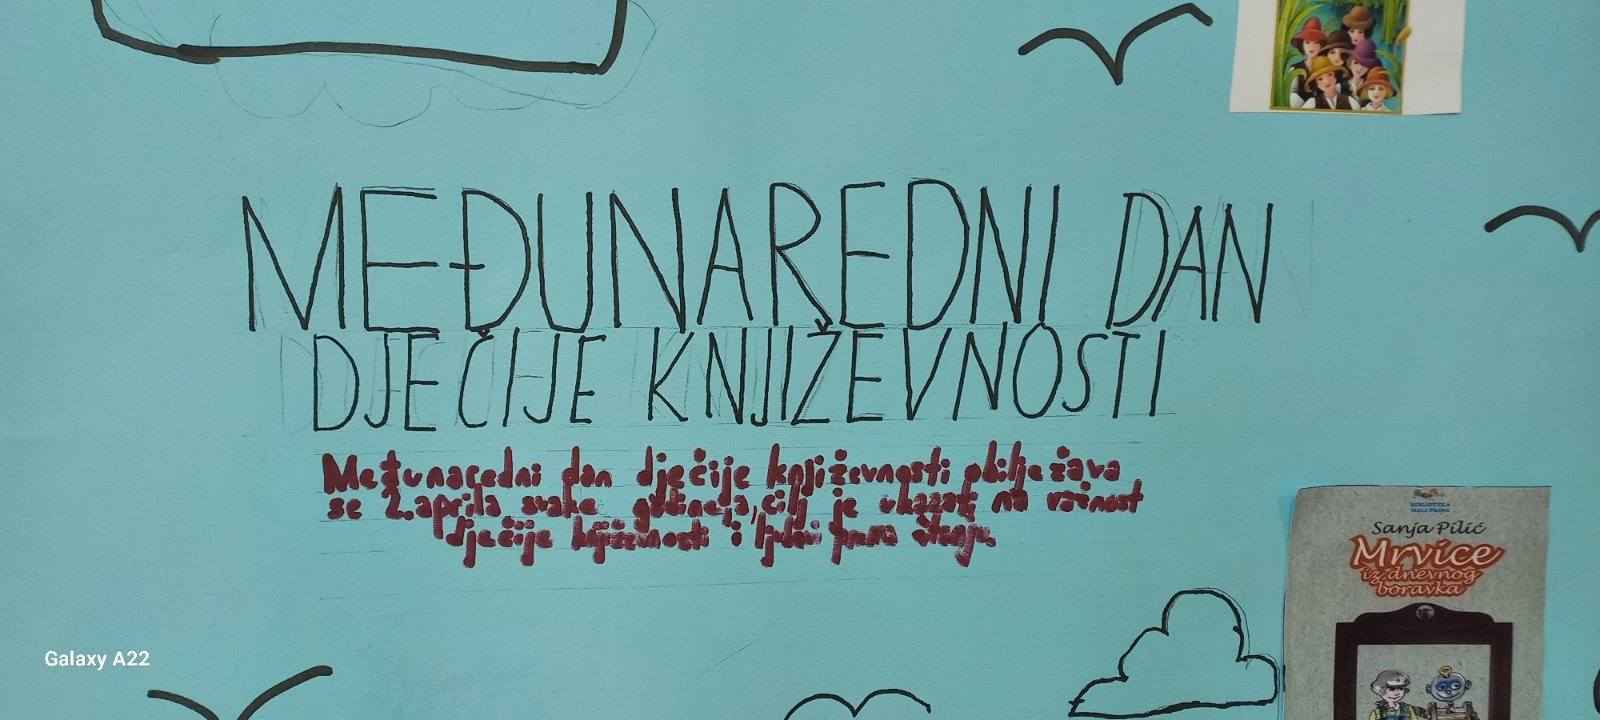 MEĐUNAREDNI DAN
DJEČIJE KNJIŽEVNOSTI
Međunaredni dan dječije književnosti obilježava
se 2. aprila svake godine, a cilj je ukazati na važnost
dječije književnosti i ljubavi prema čitanju.
BIBLIOTEKA
MALI PRINC
Sanja Pilić
Mrvice
iz dnevnog
boravka
Galaxy A22